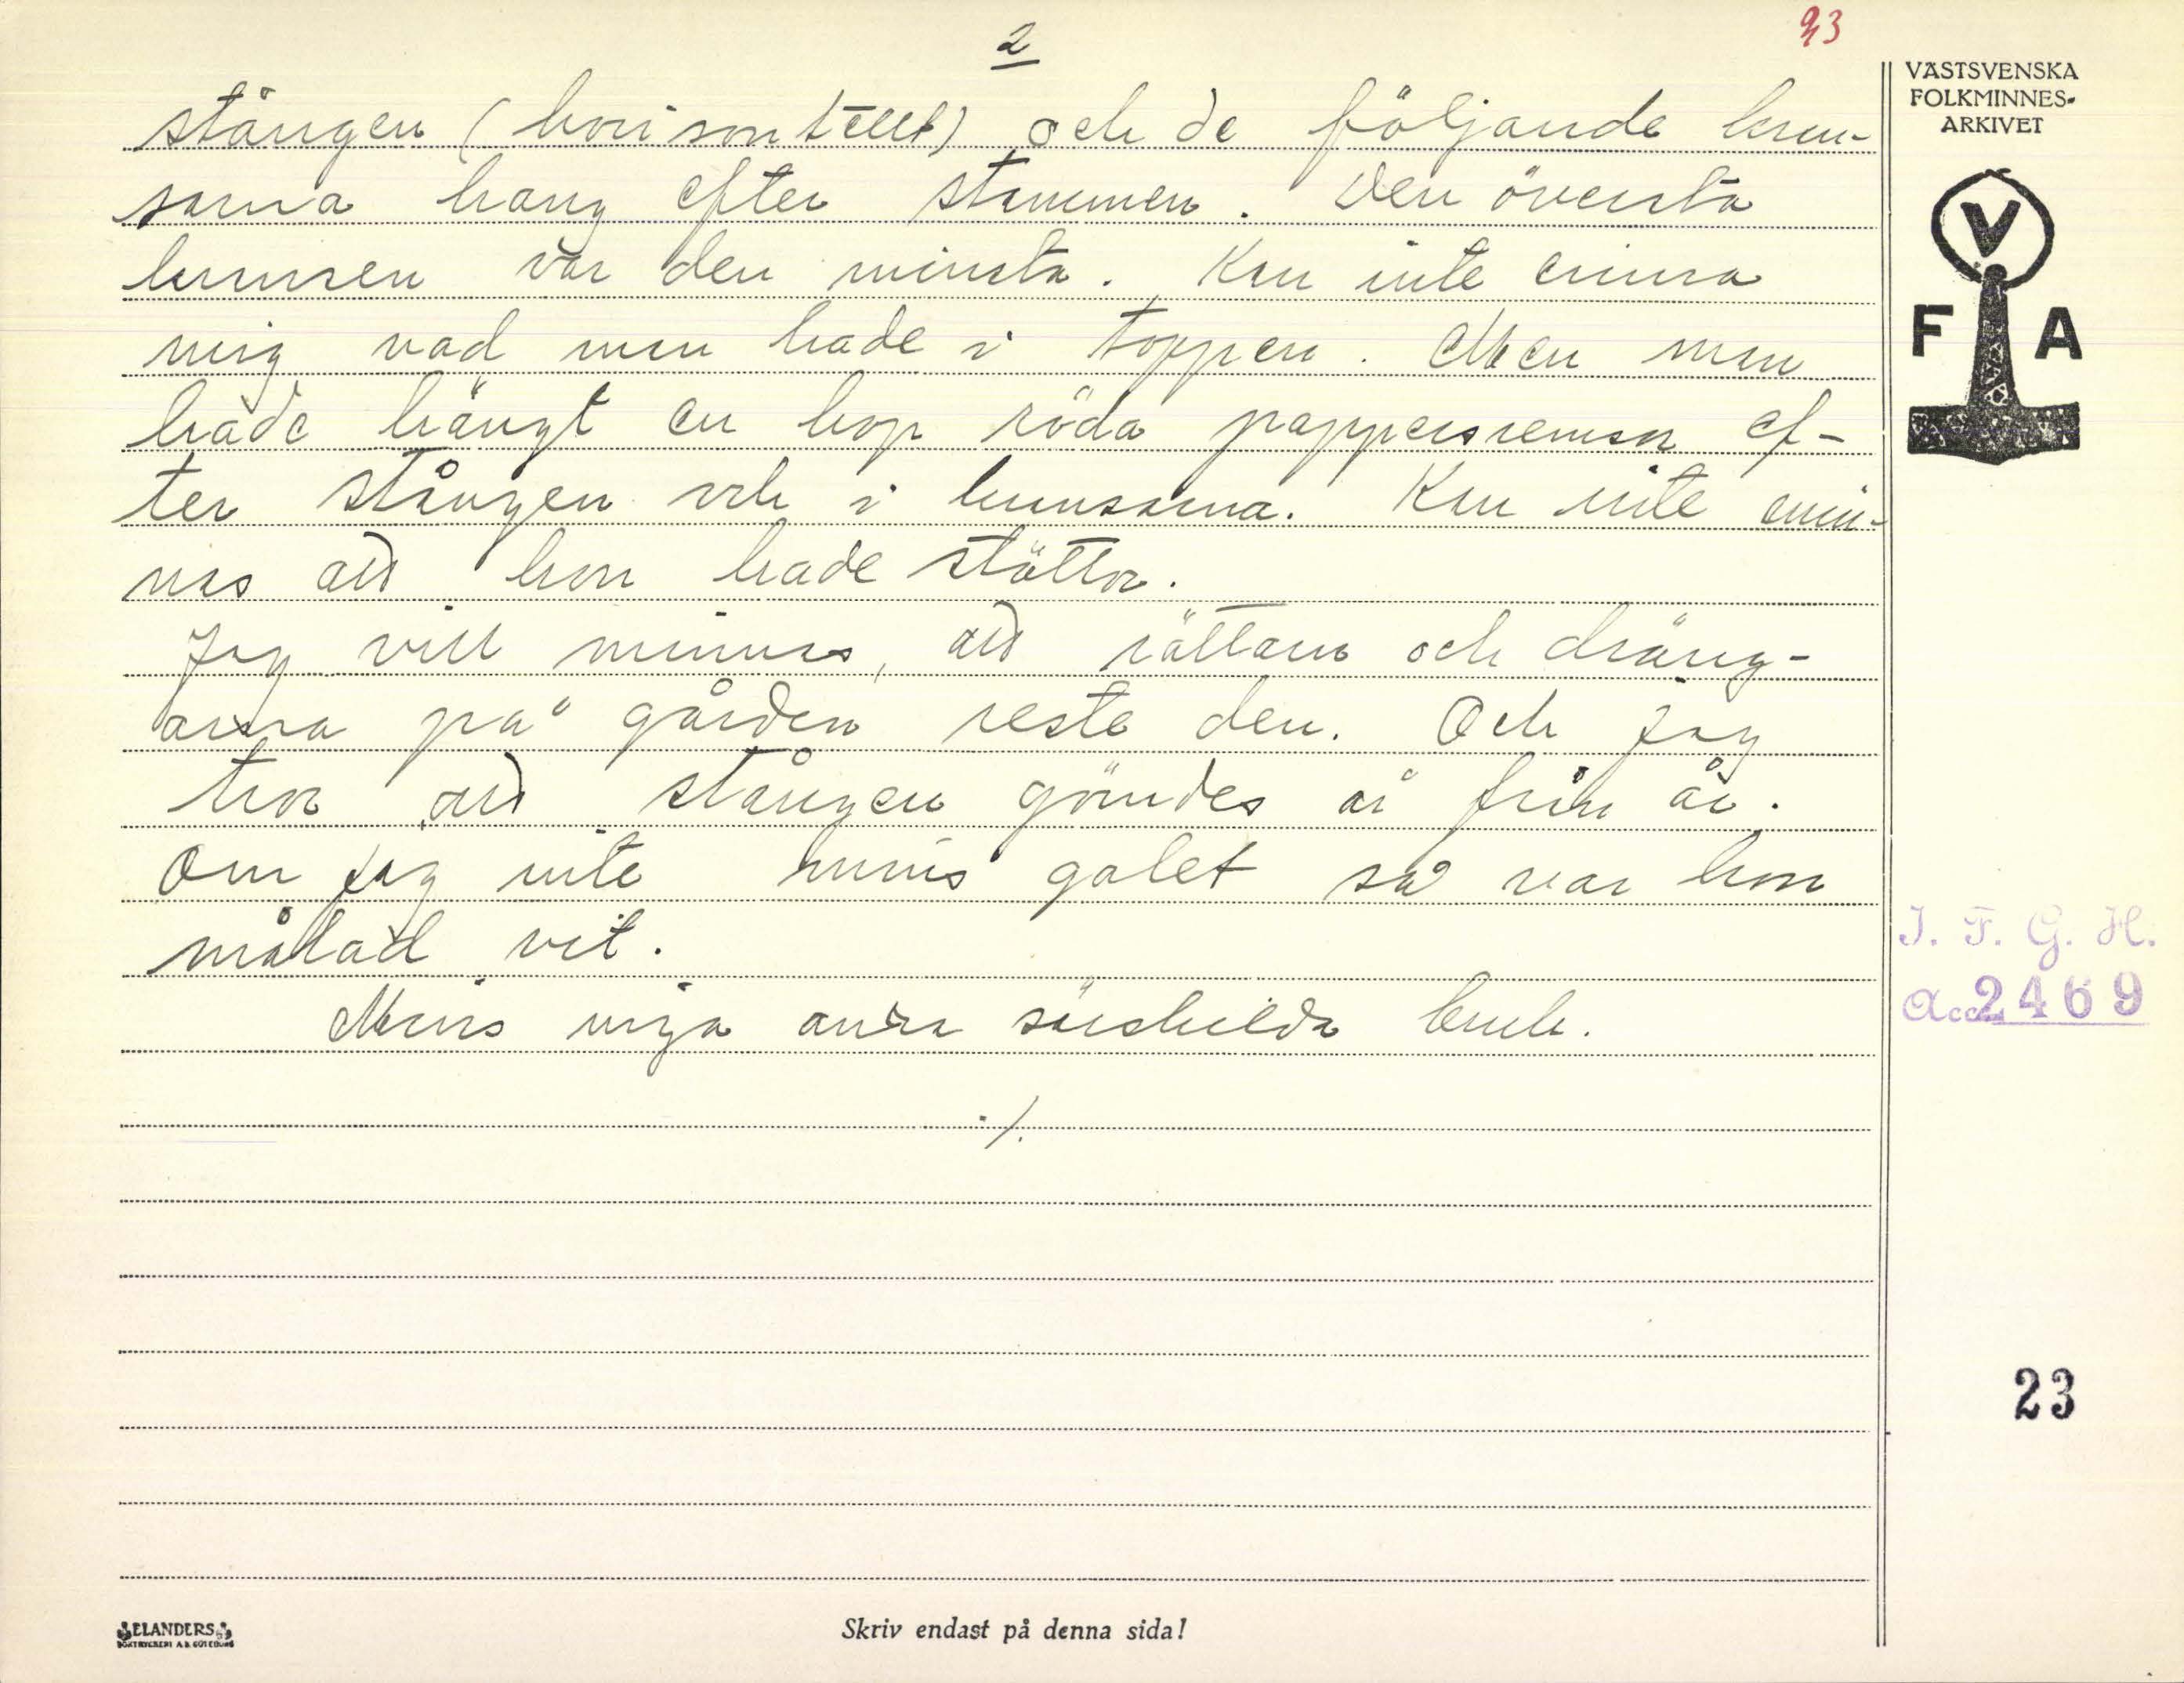 2
93
VÄSTSVENSKA
FOLKMINNES-
ARKIVET
V
F A
stången (horisontellt) och de följande kran-
sarna hang efter stammen. Den översta
kransen var den minsta. Kan inte erinra
mig vad man hade i toppen. Men man
hade hängt en hop röda pappersremsor ef-
ter stången och i kransarna. Kan inte erin-
ras att hon hade stöttor.
Jag vill minnas, att rättarn och dräng-
arna på gården reste den. Och jag
tror att stången gömdes år från år.
Om jag inte minns galet så var hon
målad vit.
Minns inga andra särskilda bruk.
./.
I. F. G. H.
Acc. 2469
23
ELANDERS
BOKTRYCKERI A.B. GÖTEBORG
Skriv endast på denna sida!